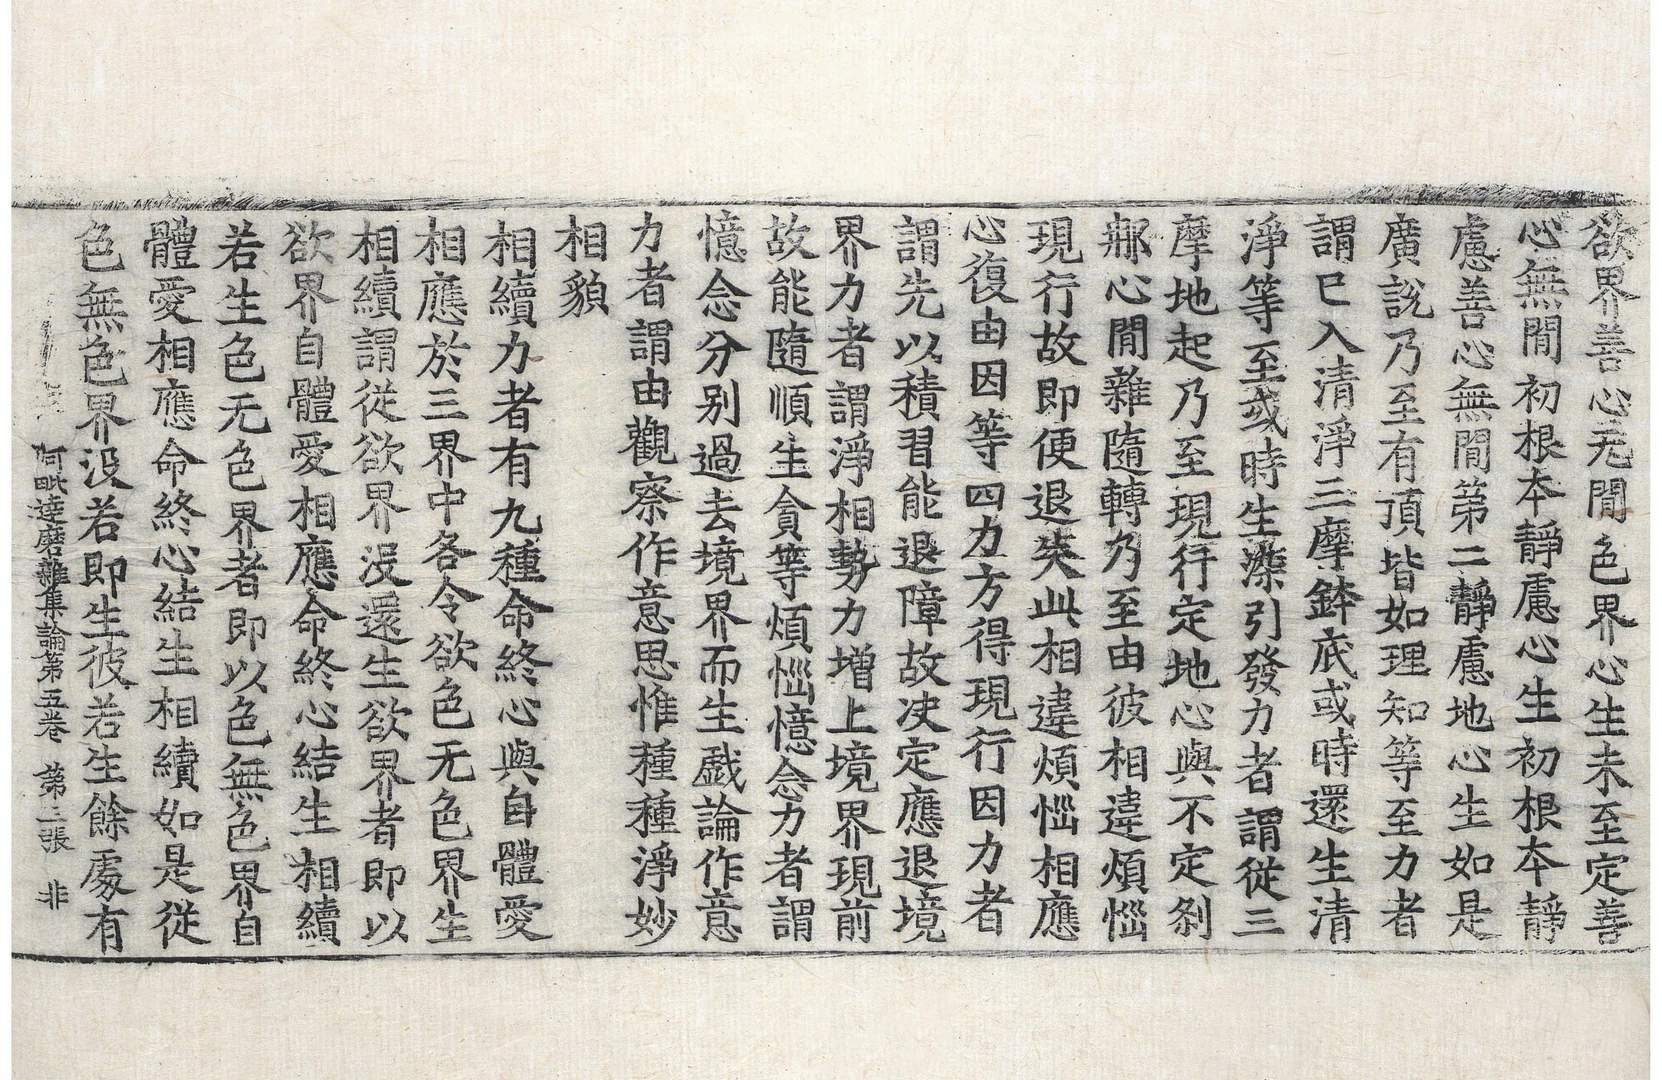 欲界善心无閒色界心生未至定善
心無閒初根本靜慮心生初根本靜
慮善心無閒第二靜慮地心生如是
廣說乃至有頂皆如理知等至力者
謂已入清淨三摩鉢底或時還生清
淨等至或時生染引發力者謂從三
摩地起乃至現行定地心與不定刹
那心閒雜隨轉乃至由彼相違煩惱
現行故即便退失此相違煩惱相應
心復由因等四力方得現行因力者
謂先以積習能退障故決定應退境
界力者謂淨相勢力增上境界現前
故能隨順生貪等煩惱憶念力者謂
憶念分别過去境界而生戲論作意
力者謂由觀察作意思惟種種淨妙
相貌
相續力者有九種命終心與自體愛
相應於三界中各令欲色无色界生
相續謂從欲界没還生欲界者即以
欲界自體愛相應命終心結生相續
若生色无色界者即以色無色界自
體愛相應命終心結生相續如是從
色無色界没若即生彼若生餘處有
阿毗達磨雜集論第五卷 第三張 非